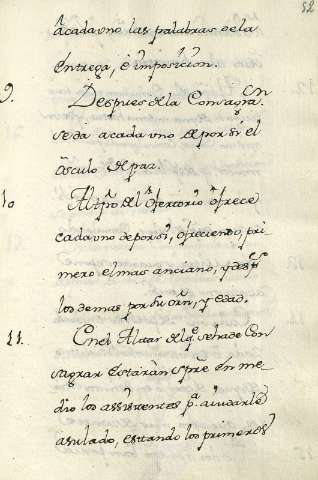 52
à cada uno las palabras de la
entrega, è imposicion.
9. Despues de la Consagra.on
se dà a cada uno de por si el
òsculo de paz.
10 Al tpo del ofertorio ofrece
cada uno de por si, ofreciendo pri-
mero el mas anciano, y desps
los demas por su orn, y edad.
11. En el Altar del qe. se ha de con
sagrar estaràn spre en me-
dio los assistentes pa. aiudarle
a su lado, estando los primeros